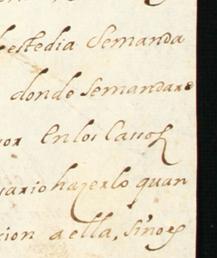 estedia Semanda
donde Semandare
por En los Cassos
sario hazerlo quan
cion aella, sinos